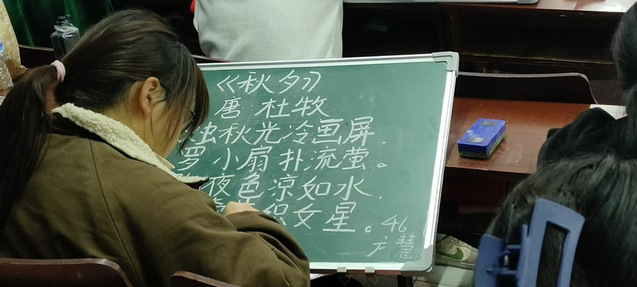 《秋夕》
唐·杜牧
烛秋光冷画屏.
罗小扇扑流萤。
夜色凉如水.
织女星。
46
慧